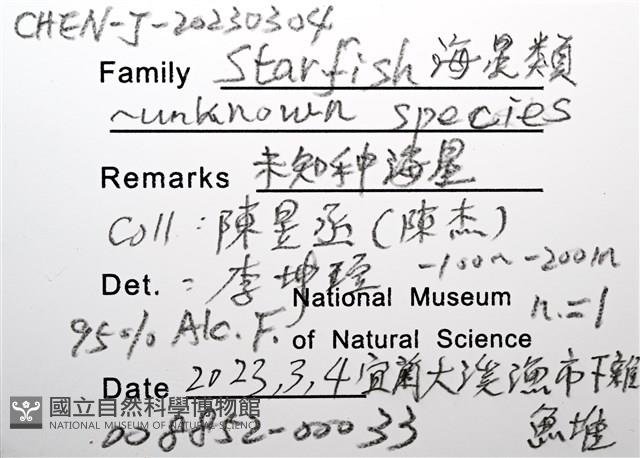 CHEN-J-20230304
Family Starfish 海星類
~unknown species
Remarks 未知种海星
Coll : 陳昱丞(陳杰)
Det. : 李坤瑄 -100~-200m
National Museum n.=1
95% Alc. F. of Natural Science
Date 2023,3,4 宜蘭大溪漁市下雜
魚堆
國立自然科學博物館
NATIONAL MUSEUM OF NATURAL SCIENCE
008852-00033